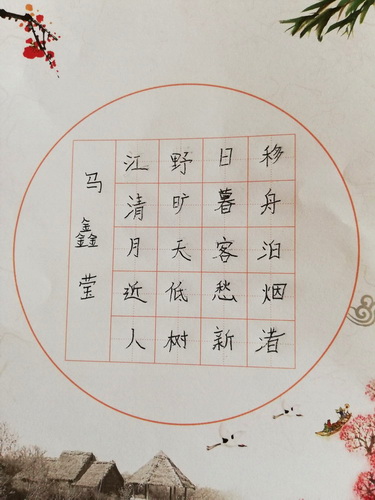 移舟泊烟渚
日暮客愁新
野旷天低树
江清月近人
马鑫莹